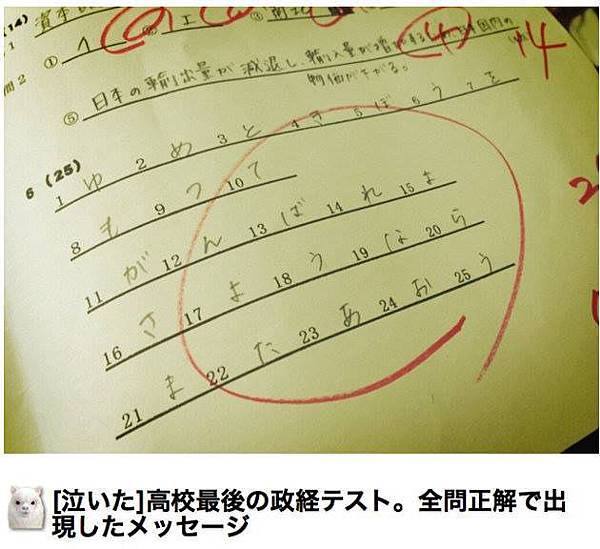 (14) 資本
① イ ② エ ③
問2
⑤ 日本の輸出量が減退し、輸入量が増加する 国内の
物価が下がる。
4 14
6 (25)
1 ゆ 2 め 3 と 4 き 5 ぼ 6 う 7 を
8 も 9 っ 10 て
11 が 12 ん 13 ば 14 れ 15 よ
16 さ 17 よ 18 う 19 な 20 ら
21 ま 22 た 23 あ 24 お 25 う
[泣いた]高校最後の政経テスト。全問正解で出
現したメッセージ